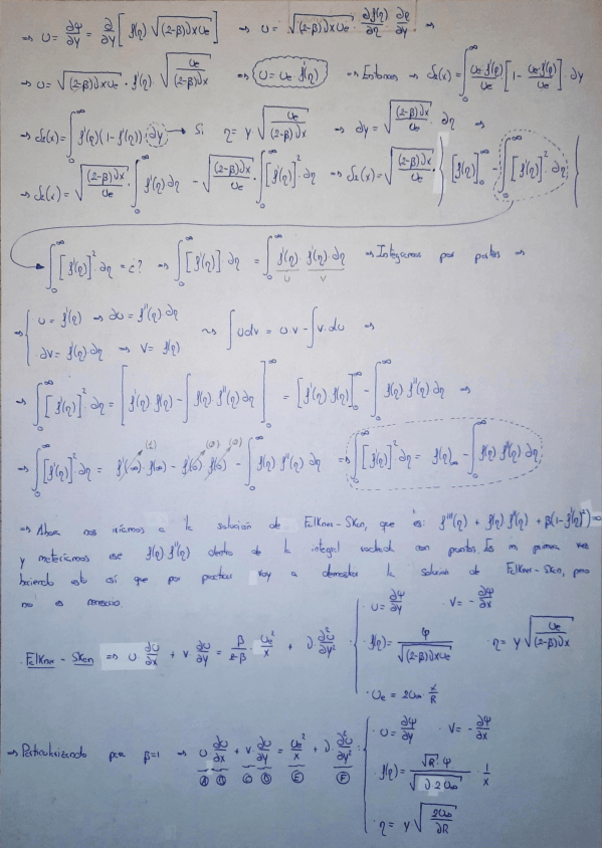 ⇒ U = ∂Ψ/∂y = ∂/∂y [ f(η) √((2-β)νxUe) ] ⇒ U = √((2-β)νxUe) · ∂f(η)/∂η · ∂η/∂y ⇒
⇒ U = √((2-β)νxUe) · f'(η) √(Ue/((2-β)νx)) ⇒ U = Ue f'(η) ⇒ Entonces ⇒ δ₂(x) = ∫₀^∞ Ue f'(η)/Ue [1 - Ue f'(η)/Ue] ∂y
⇒ δ₂(x) = ∫₀^∞ f'(η)(1 - f'(η)) ∂y → Si η = y √(Ue/((2-β)νx)) ⇒ ∂y = √((2-β)νx/Ue) · ∂η ⇒
⇒ δ₂(x) = √((2-β)νx/Ue) · ∫₀^∞ f'(η) ∂η - √((2-β)νx/Ue) · ∫₀^∞ [f'(η)]² ∂η ⇒ δ₂(x) = √((2-β)νx/Ue) · { [f(η)]₀^∞ - ∫₀^∞ [f'(η)]² ∂η }
∫₀^∞ [f'(η)]² ∂η = ¿? ⇒ ∫₀^∞ [f'(η)]² ∂η = ∫₀^∞ f'(η) · f'(η) · ∂η ⇒ Integramos por partes ⇒
U V
⇒ { U = f'(η) ⇒ ∂U = f''(η) ∂η
∂V = f'(η) ∂η ⇒ V = f(η) ⇒ ∫ U dv = U·V - ∫ V·dU ⇒
⇒ ∫₀^∞ [f'(η)]² ∂η = [ f'(η) f(η) - ∫ f(η) f''(η) ∂η ]₀^∞ = [f'(η) f(η)]₀^∞ - ∫₀^∞ f(η) f''(η) ∂η ⇒
⇒ ∫₀^∞ [f'(η)]² ∂η = f'(∞)·f(∞) - f'(0) f(0) - ∫₀^∞ f(η) f''(η) ∂η ⇒ ∫₀^∞ [f'(η)]² ∂η = f(η)∞ - ∫₀^∞ f(η) f''(η) ∂η
(1) (0) (0)
⇒ Ahora nos iríamos a la solución de Felkner-Sken, que es: f'''(η) + f(η) f''(η) + β(1-f'(η)²)=0
y meteríamos ese f(η) f''(η) dentro de la integral con puntos. Es mi primera vez
haciendo esto así que por practicar voy a demostrar la solución de Felkner-Sken, pero
no es necesario.
Felkner-Sken ⇒ U ∂U/∂x + V ∂U/∂y = β/(2-β) · Ue²/x + ν ∂²U/∂y² { · U = ∂Ψ/∂y · V = -∂Ψ/∂x
· f(η) = Ψ/√((2-β)νxUe) · η = y √(Ue/((2-β)νx))
· Ue = 2U∞ x/R
⇒ Particularizando para β=1 ⇒ U ∂U/∂x + V ∂U/∂y = Ue²/x + ν · ∂²U/∂y² { · U = ∂Ψ/∂y · V = -∂Ψ/∂x
Ⓐ Ⓑ Ⓒ Ⓓ Ⓔ Ⓕ
· f(η) = √R · Ψ/√(ν·2U∞) · 1/x
· η = y √(2U∞/νR)